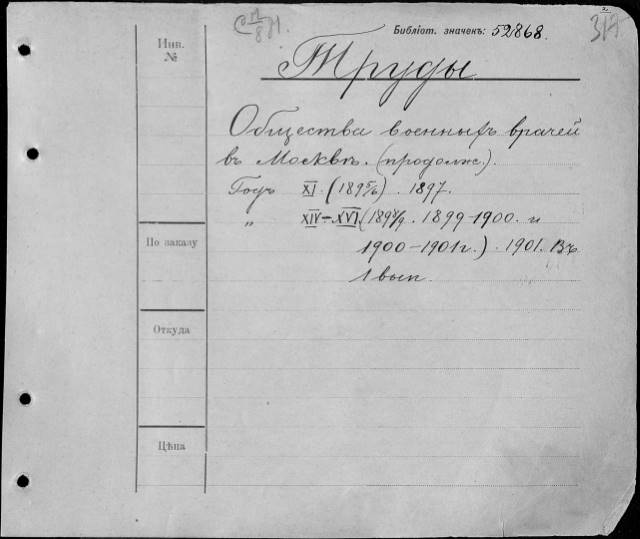 Библіот. значекъ: 52868.
Инв.
№
Труды
Общества военныхъ врачей
въ Москвѣ. (продолж.).
Годъ XI. (1895/6) . 1897.
„ XIV–XVI (1898/9 . 1899-1900. и
1900–1901г.) . 1901. Въ
1 вып.
По заказу
Откуда
Цѣна